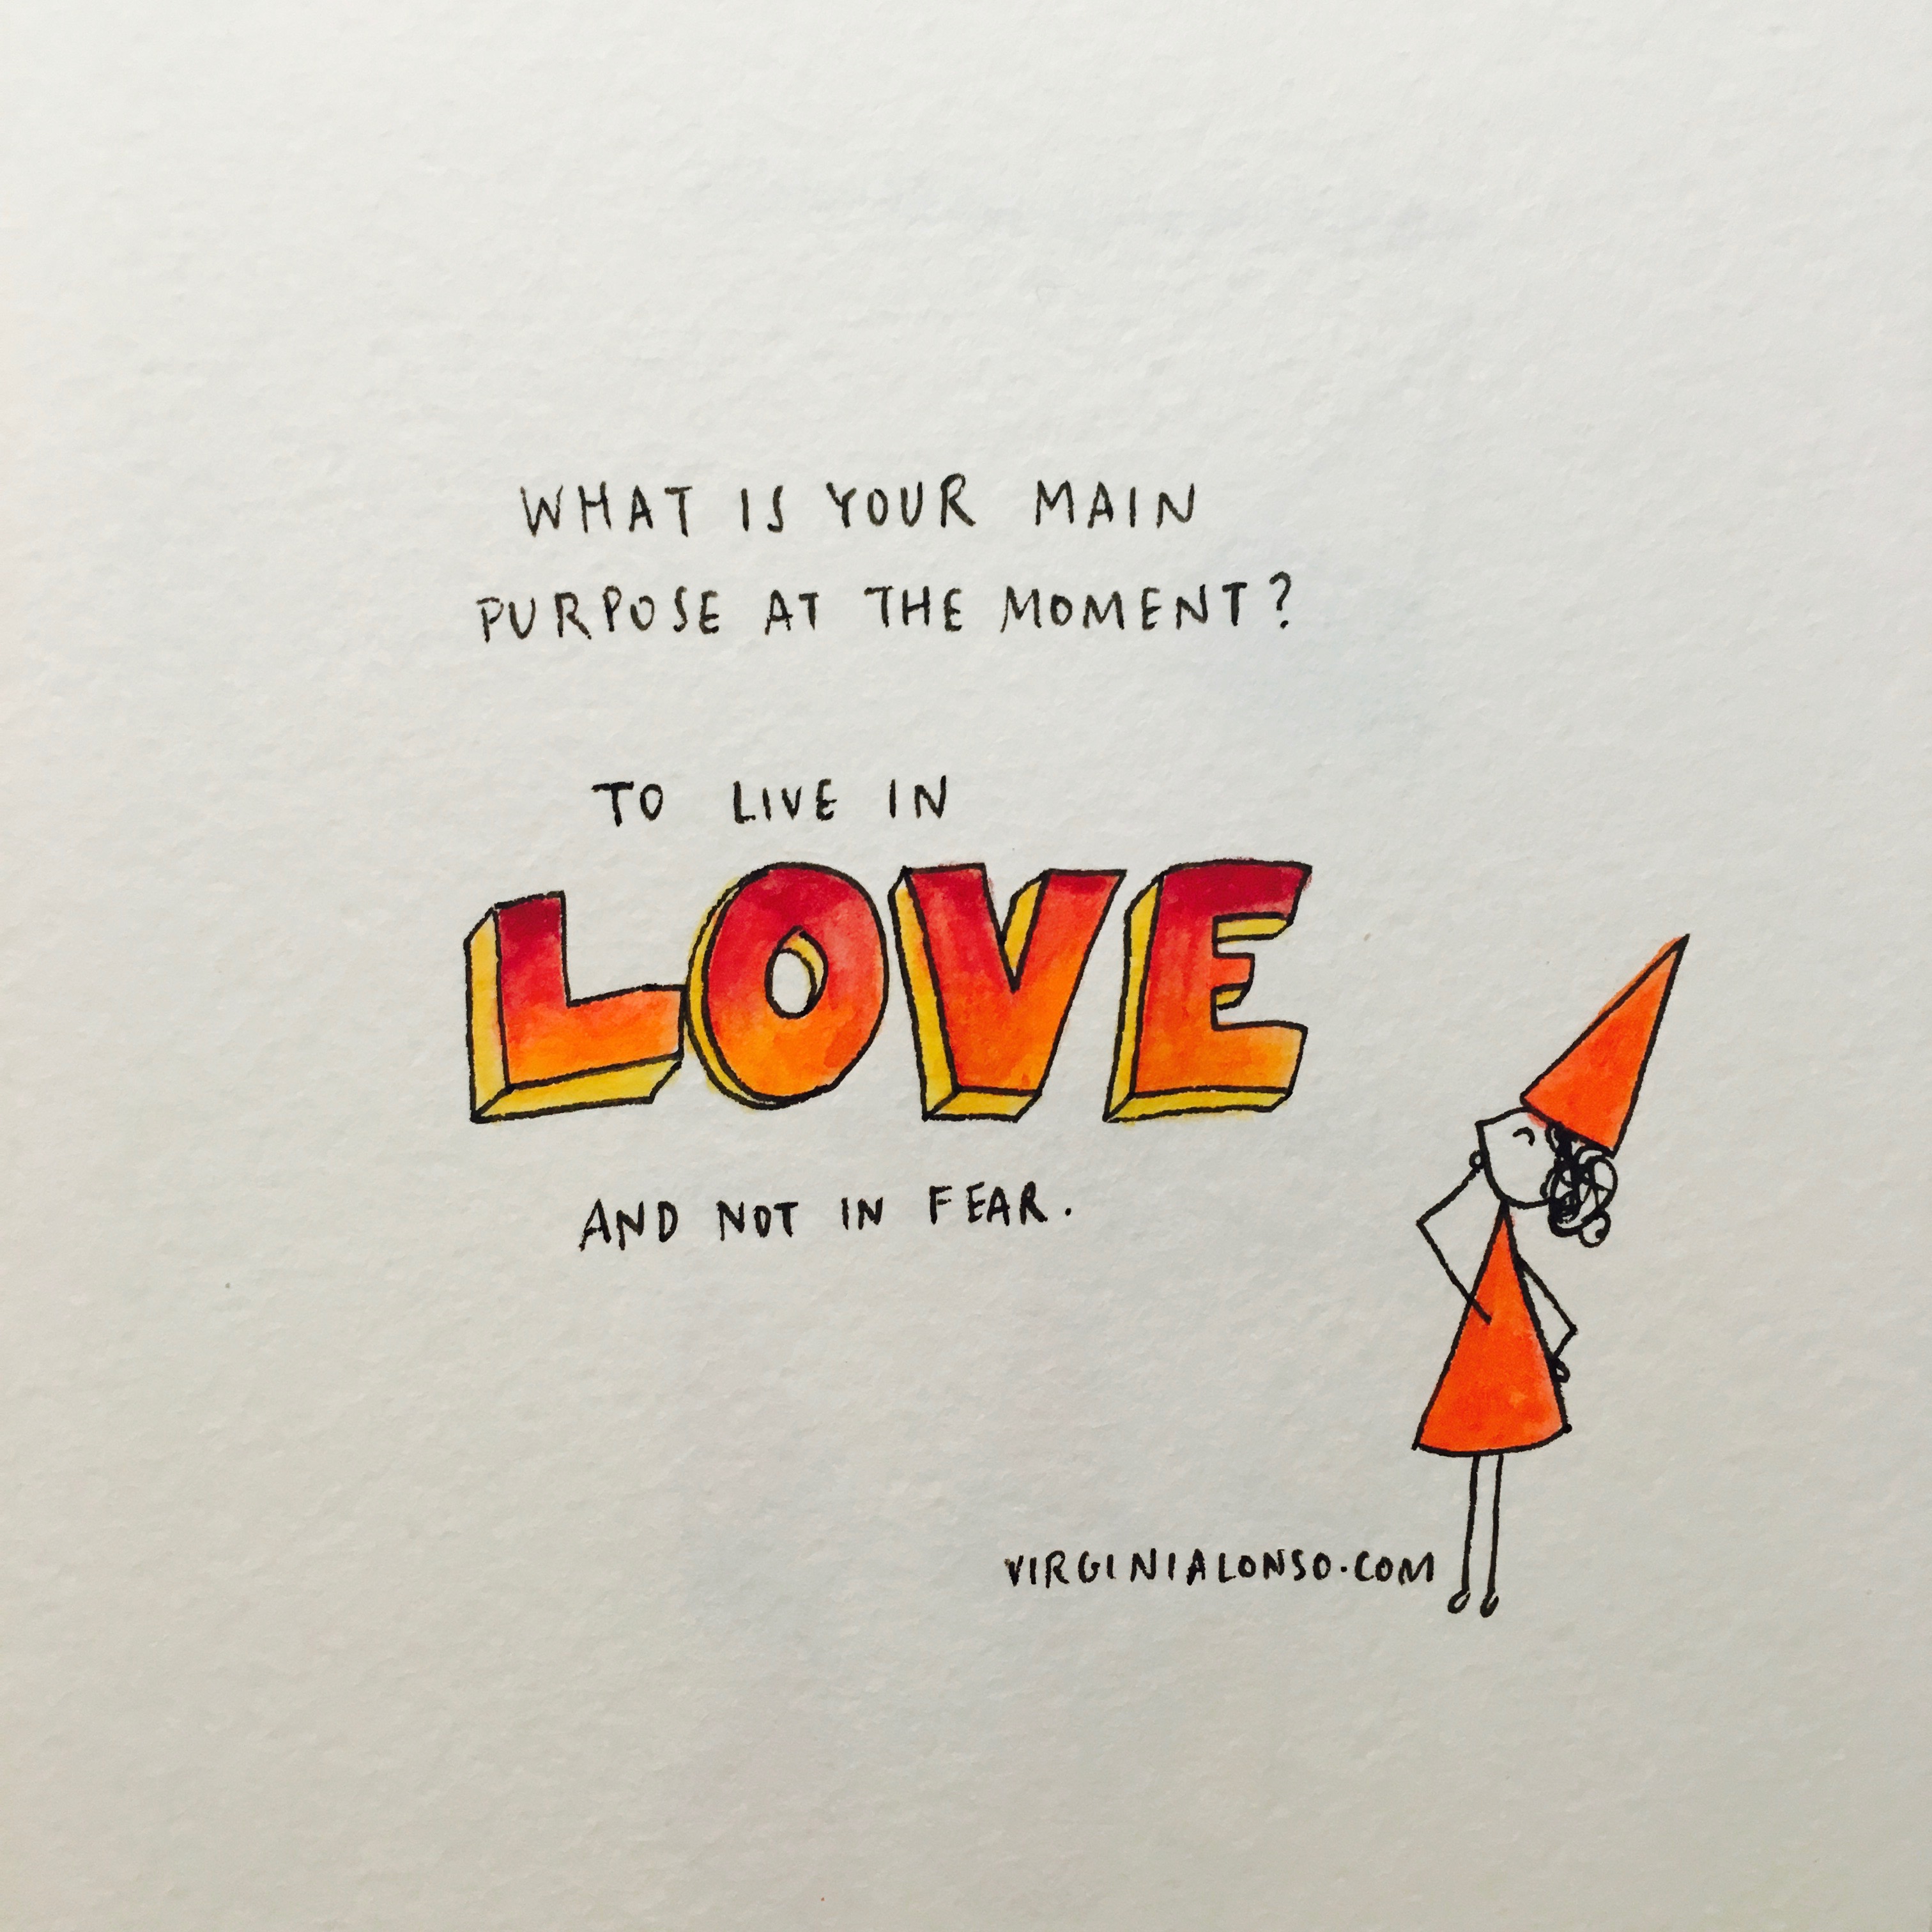 WHAT IS YOUR MAIN
PURPOSE AT THE MOMENT?
TO LIVE IN
LOVE
AND NOT IN FEAR.
VIRGINIALONSO.COM